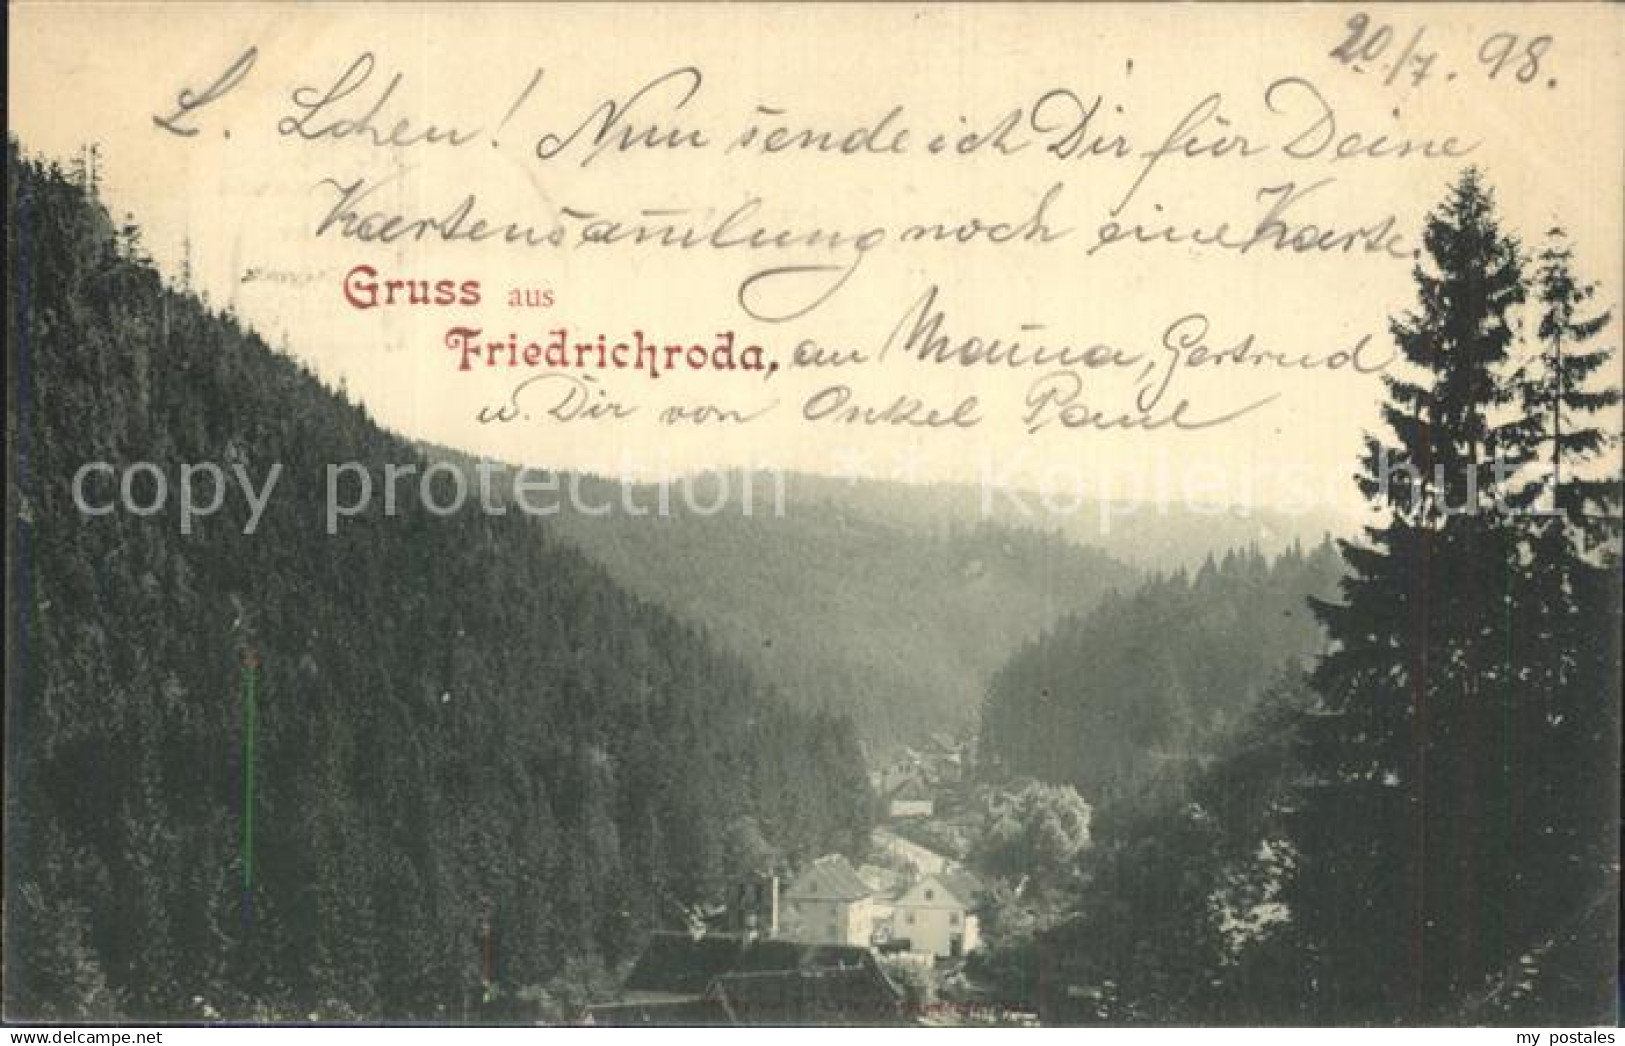 20/7. 98.
L. Lchen! Nun sende ich Dir für Deine
Kartensam̅lung noch eine Karte
Gruss aus
Friedrichroda, an Mam̅a, Gertrud
u. Dir von Onkel Paul
copy protection ** Kopierschutz
my postales